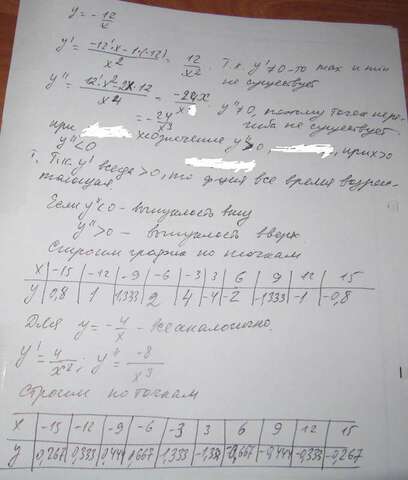 y = -12/x
y' = (-12'·x - 1·(-12))/x² = 12/x². Т.к. y'≠0 - то max и min
не существует
y'' = (12'·x² - 2x·12)/x⁴ = -24x/x⁴ = -24/x³. y''≠0, поэтому точек пере-
гиба не существует.
при хозначение y''>0, при x>0
y''<0
Т.к. y' всегда >0, то ф-ция все время возрас-
тающая
Если y''<0 - выпуклость вниз
y''>0 - выпуклость вверх
Строим график по точкам
x | -15 | -12 | -9 | -6 | -3 | 3 | 6 | 9 | 12 | 15
y | 0,8 | 1 | 1,333 | 2 | 4 | -4 | -2 | -1,333 | -1 | -0,8
Для y = -4/x - все аналогично.
y' = 4/x²; y'' = -8/x³
Строим по точкам
x | -15 | -12 | -9 | -6 | -3 | 3 | 6 | 9 | 12 | 15
y | 0,267 | 0,333 | 0,444 | 0,667 | 1,333 | -1,33 | -0,667 | -0,444 | -0,333 | -0,267